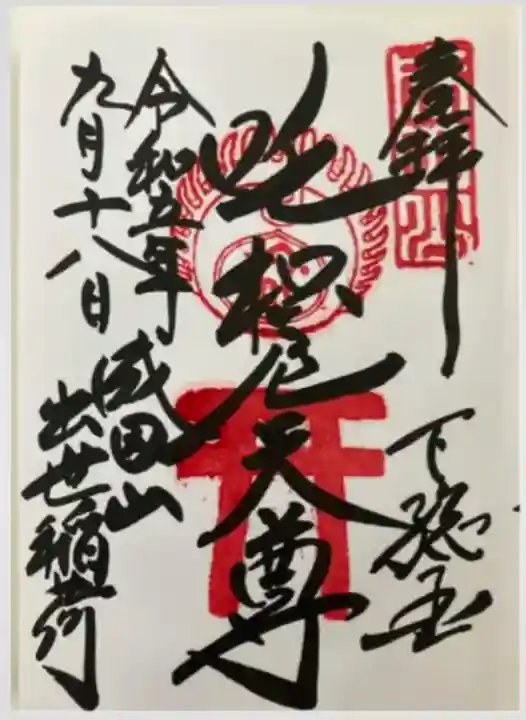 奉拝
下総国
吒枳尼天尊
令和五年
九月十八日
成田山
出世稲荷